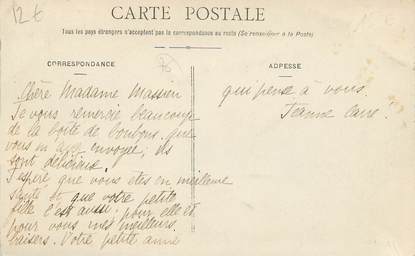 12 €
CARTE POSTALE
Tous les pays étrangers n'acceptent pas la correspondance au recto (Se renseigner à la Poste)
CORRESPONDANCE
Chère Madame Massien
Je vous remercie beaucoup
de la boîte de bonbons que
vous m'avez envoyée, ils
sont délicieux.
J'espère que vous êtes en meilleure
santé et que votre petite
fille l'est aussi; pour elle et
pour vous mes meilleurs
baisers. Votre petite amie
ADRESSE
qui pense à vous.
Jeanne Carré